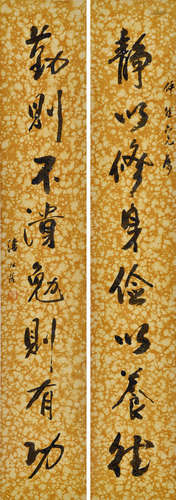 静以修身儉以養德
勤則不潰勉則有功